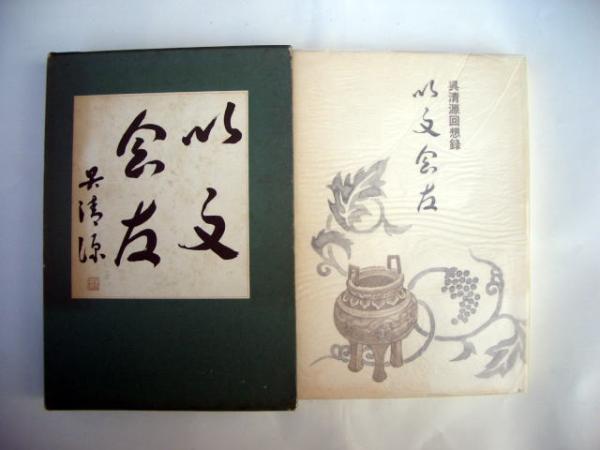 以文
会友
呉清源
呉清源回想録
以文会友